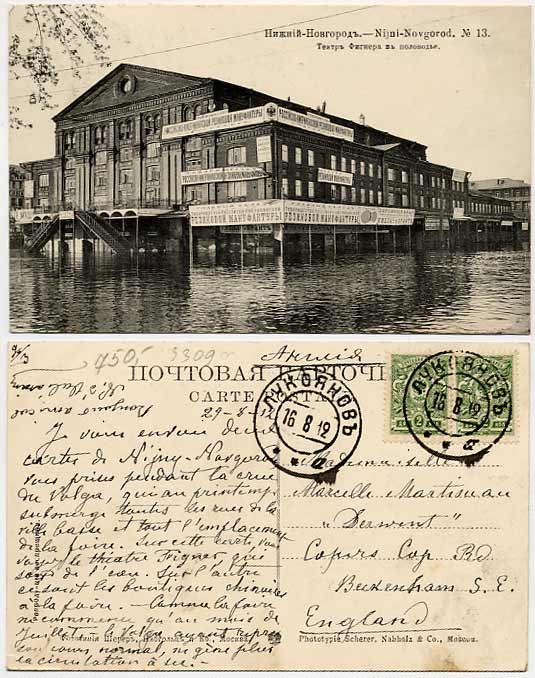 Нижній-Новгородъ.—Nijni-Novgorod. № 13.
Театръ Фигнера въ половодье.
РЕЗИНОВОЙ МАНУФАКТУРЫ
РЕЗИНОВОЙ МАНУФАКТУРЫ
750,- 3309
Англія
ПОЧТОВАЯ КАРТОЧКА
CARTE POSTALE
29-8-12
ЛУКОЯНОВЪ
16 8 12
а
ЛУКОЯНОВЪ
16 8 12
а
Je vous envoie deux
cartes de Nijny-Novgorod
vues prises pendant la crue
du Volga, qui au printemps
submerge toutes les rues de la
ville basse et tout l'emplacement
de la foire. Sur cette carte vous
voyez le théâtre Figner, qui
sort de l'eau. Sur l'autre
ce sont les boutiques chinoises
à la foire. - Comme la foire
ne commence qu'au mois de
Juillet, le Volga ayant repris
son cours normal, ne gêne plus
la circulation à sec. -
Mademoiselle
Marcelle Martineau
"Derwent"
Copers Cop Rd
Beckenham S. E.
England
Фототипія Шереръ, Набгольцъ и Ко., Москва.
Phototypie Scherer, Nabholz & Co., Moscou.